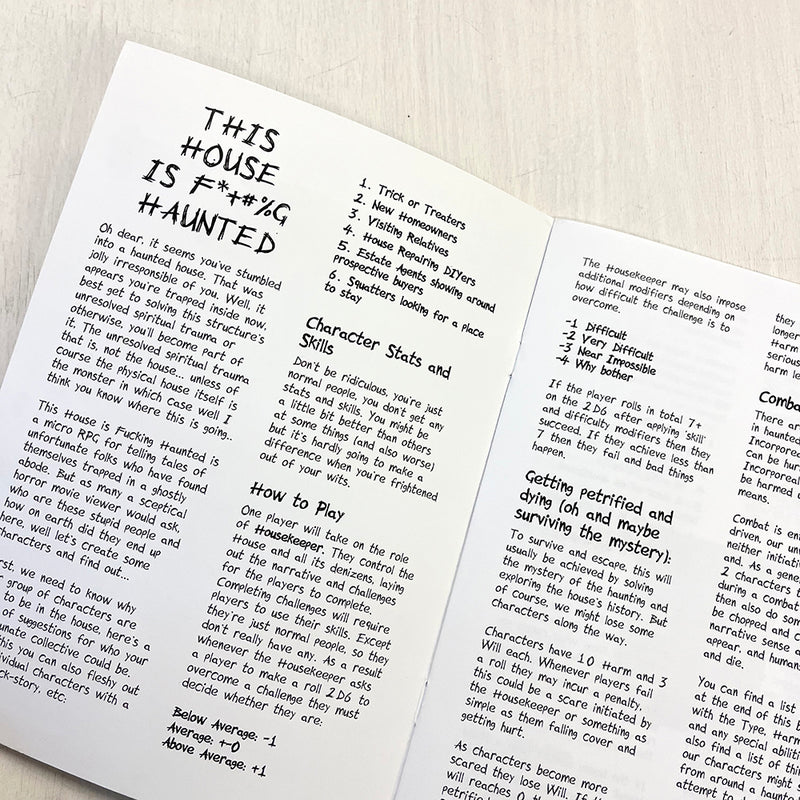 THIS
HOUSE
IS F*+#%G
HAUNTED
Oh dear, it seems you've stumbled
into a haunted house. That was
jolly irresponsible of you. Well, it
appears you're trapped inside now,
best get to solving this structure's
unresolved spiritual trauma or
otherwise, you'll become part of
it. The unresolved spiritual trauma
that is, not the house... unless of
course the physical house itself is
the monster in which case well I
think you know where this is going..
This House is Fucking Haunted is
a micro RPG for telling tales of
unfortunate folks who have found
themselves trapped in a ghostly
abode. But as many a sceptical
horror movie viewer would ask,
who are these stupid people and
how on earth did they end up
here, well let's create some
characters and find out...
we need to know why
group of characters are
to be in the house, here's a
of suggestions for who your
collective could be.
this you can also fleshy out
characters with a
etc:
1. Trick or Treaters
2. New Homeowners
3. Visiting Relatives
4. House Repairing DIYers
5. Estate Agents showing around
prospective buyers
6. Squatters looking for a place
to stay
Character Stats and
Skills
Don't be ridiculous, you're just
normal people, you don't get any
stats and skills. You might be
a little bit better than others
at some things (and also worse)
but it's hardly going to make a
difference when you're frightened
out of your wits.
How to Play
One player will take on the role
of Housekeeper. They control the
House and all its denizens, laying
out the narrative and Challenges
for the players to complete.
Completing Challenges will require
players to use their skills. Except
they're just normal people, so they
don't really have any. As a result
whenever the Housekeeper asks
a player to make a roll 2D6 to
overcome a challenge they must
decide whether they are:
Below Average: -1
Average: +-0
Above Average: +1
The Housekeeper may also impose
additional modifiers depending on
how difficult the challenge is to
overcome.
-1 Difficult
-2 Very Difficult
-3 Near Impossible
-4 Why bother
If the player rolls in total 7+
on the 2D6 after applying skill
and difficulty modifiers then they
succeed. If they achieve less than
7 then they fail and bad things
happen.
Getting petrified and
dying (oh and maybe
surviving the mystery):
To survive and escape, this will
usually be achieved by solving
the mystery of the haunting and
exploring the house's history. But
of course, we might lose some
Characters along the way.
Characters have 10 Harm and 3
Will each. Whenever players fail
a roll they may incur a penalty.
this could be a scare initiated by
the Housekeeper or something as
simple as them falling cover and
getting hurt.
As Characters become more
scared they lose Will. If
will reaches 0
they
longer
Harm
serious
harm
There are
in haunted
Incorporeal
can be hur
Incorporeal
be harmed
means.
Combat is
driven, our
neither
and. As a
2 characters
during a Combat
then also do
be chopped and
narrative sense
appear, and
and die.
You can find a list
at the end of this
with the Type, Harm
and any special
also find a list of
our characters might
from around a
attempt to